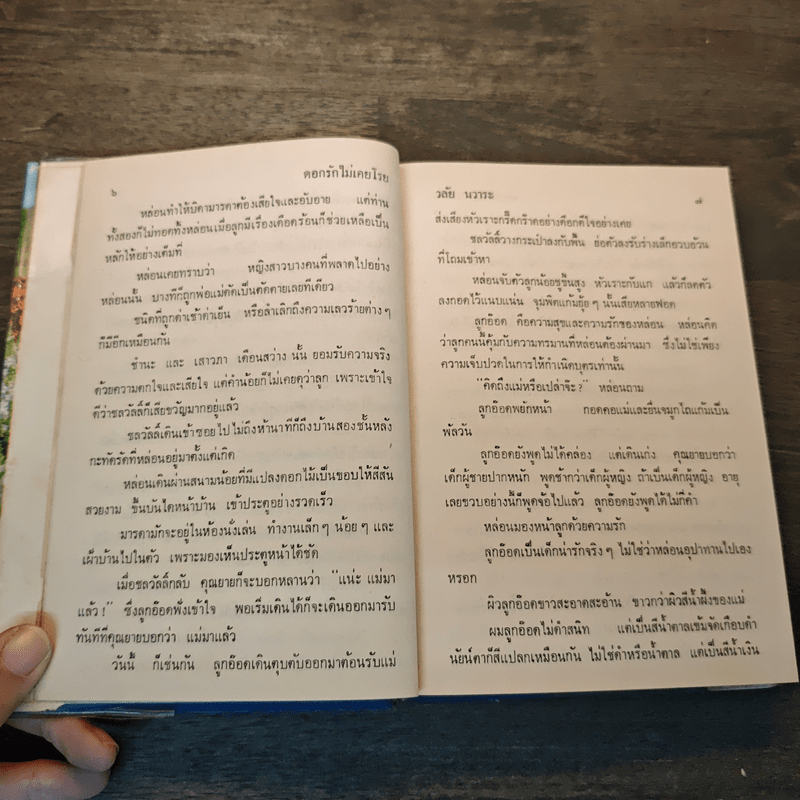 ดอกรักไม่เคยโรย
๖
หล่อนทำให้บิดามารดาต้องเสียใจและอับอาย แต่ท่าน
ทั้งสองก็ไม่ทอดทิ้งหล่อนเมื่อลูกมีเรื่องเดือดร้อนก็ช่วยเหลือเป็น
หลักให้อย่างเต็มที่
หล่อนเคยทราบว่า หญิงสาวบางคนที่พลาดไปอย่าง
หล่อนนั้น บางทีก็ถูกพ่อแม่ตัดเป็นตัดตายเลยทีเดียว
ชนิดที่ถูกด่าเช้าด่าเย็น หรือลำเลิกถึงความเลวร้ายต่างๆ
ก็มีอีกเหมือนกัน
ชำนะ และ เสาวภา เดือนสว่าง นั้น ยอมรับความจริง
ด้วยความตกใจและเสียใจ แต่คำน้อยก็ไม่เคยดุว่าลูก เพราะเข้าใจ
ดีว่าชลวัลลิ์ก็เสียขวัญมากอยู่แล้ว
ชลวัลลิ์เดินเข้าซอยไปไม่ถึงห้านาทีก็ถึงบ้านสองชั้นหลัง
กะทัดรัดที่หล่อนอยู่มาตั้งแต่เกิด
หล่อนเดินผ่านสนามน้อยที่มีแปลงดอกไม้เป็นขอบให้สีสัน
สวยงาม ขึ้นบันไดหน้าบ้าน เข้าประตูอย่างรวดเร็ว
มารดามักจะอยู่ในห้องนั่งเล่น ทำงานเล็กๆ น้อยๆ และ
เฝ้าบ้านไปในตัว เพราะมองเห็นประตูหน้าได้ชัด
เมื่อชลวัลลิ์กลับ คุณยายก็จะบอกหลานว่า "แน่ะ แม่มา
แล้ว!" ซึ่งลูกอ๊อดฟังเข้าใจ พอเริ่มเดินได้ก็จะเดินออกมารับ
ทันทีที่คุณยายบอกว่า แม่มาแล้ว
วันนี้ ก็เช่นกัน ลูกอ๊อดเดินตุบตับออกมาต้อนรับแม่
วลัย นวาระ
๗
ส่งเสียงหัวเราะกรี๊ดกร๊าดอย่างดีอกดีใจอย่างเคย
ชลวัลลิ์วางกระเป๋าลงกับพื้น ย่อตัวลงรับร่างเล็กอวบอ้วน
ที่โถมเข้าหา
หล่อนจับตัวลูกน้อยชูขึ้นสูง หัวเราะกับแก แล้วก็ลดตัว
ลงกอดไว้แนบแน่น จุมพิตแก้มยุ้ยๆ นั้นเสียหลายฟอด
ลูกอ๊อด คือความสุขและความรักของหล่อน หล่อนคิด
ว่าลูกคนนี้คุ้มกับความทรมานที่หล่อนต้องผ่านมา ซึ่งไม่ใช่เพียง
ความเจ็บปวดในการให้กำเนิดบุตรเท่านั้น
"คิดถึงแม่หรือเปล่าจ๊ะ?" หล่อนถาม
ลูกอ๊อดพยักหน้า กอดคอแม่และยื่นจมูกไถแก้มเป็น
พัลวัน
ลูกอ๊อดยังพูดไม่ได้คล่อง แต่เดินเก่ง คุณยายบอกว่า
เด็กผู้ชายปากหนัก พูดช้ากว่าเด็กผู้หญิง ถ้าเป็นเด็กผู้หญิง อายุ
เลยขวบอย่างนี้ก็พูดจ้อไปแล้ว ลูกอ๊อดยังพูดได้ไม่กี่คำ
หล่อนมองหน้าลูกด้วยความรัก
ลูกอ๊อดเป็นเด็กน่ารักจริงๆ ไม่ใช่ว่าหล่อนอุปาทานไปเอง
หรอก
ผิวลูกอ๊อดขาวสะอาดสะอ้าน ขาวกว่าผิวสีน้ำผึ้งของแม่
ผมลูกอ๊อดไม่ดำสนิท แต่เป็นสีน้ำตาลเข้มจัดเกือบดำ
นัยน์ตาก็สีแปลกเหมือนกัน ไม่ใช่ดำหรือน้ำตาล แต่เป็นสีน้ำเงิน